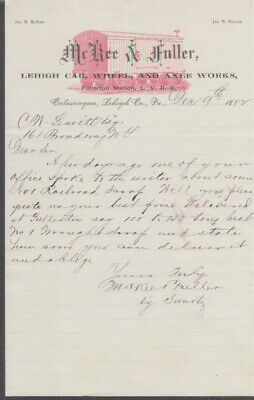 Jas. H. McKee.
Jas. W. Fuller.
McKee & Fuller,
LEHIGH CAR, WHEEL, AND AXLE WORKS,
Fullerton Station, L. V. R. R.
Catasauqua, Lehigh Co., Pa., Dec 9th 1882
C.W. Leavitt Esq.
161 Broadway N Y
Dear Sir
A few days ago one of your
office spoke to the writer about some
No1 Railroad Scrap Will you please
quote us your best price delivered
at Fullerton say 100 to 150 tons best
No 1 Wrought Scrap and state
how soon you can deliver it
and oblige
Yours Truly
McKee & Fuller
by Swartz